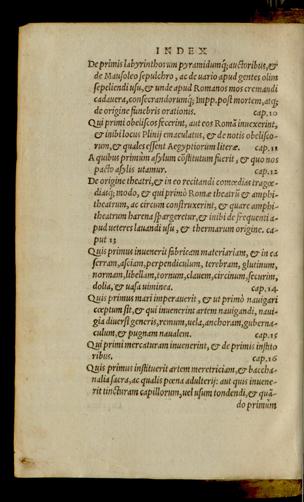 INDEX
De primis labyrinthorum pyramidumq́; auctoribus, &
de Mausoleo sepulchro, ac de uario apud gentes olim
sepeliendi usu, & unde apud Romanos mos cremandi
cadauera, consecrandorumq́; Impp. post mortem, atq;
de origine funebris orationis. cap. 10
Qui primi obeliscos fecerint, aut eos Romã inuexerint,
& inibi locus Plinij emaculatus, & de notis obelisco-
rum, & quales essent Aegyptiorum literæ. cap. 11
A quibus primùm asylum cõstitutum fuerit, & quo nos
pacto asylis utamur. cap. 12
De origine theatri, & in eo recitandi comœdias tragœ-
diasq́; modo, & qui primò Romæ theatrũ & amphi-
theatrum, ac circum construxerint, & quare amphi-
theatrum harena spargeretur, & inibi de frequenti a-
pud ueteres lauandi usu, & thermarum origine. ca-
put 13
Quis primus inuenerit fabricam materiariam, & in ea
serram, asciam, perpendiculum, terebram, glutinum,
normam, libellam, tornum, clauem, circinum, securim,
dolia, & uasa uiminea. cap. 14
Quis primus mari imperauerit, & ut primò nauigari
cœptum sit, & qui inuenerint artem nauigandi, naui-
gia diuersi generis, remum, uela, anchoram, guberna-
culum, & pugnam naualem. cap. 15
Qui primi mercaturam inuenerint, & de primis instito
ribus. cap. 16
Quis primus instituerit artem meretriciam, & baccha-
nalia sacra, ac qualis pœna adulterij: aut quis inuene-
rit tincturam capillorum, uel usum tondendi, & quã-
do primùm